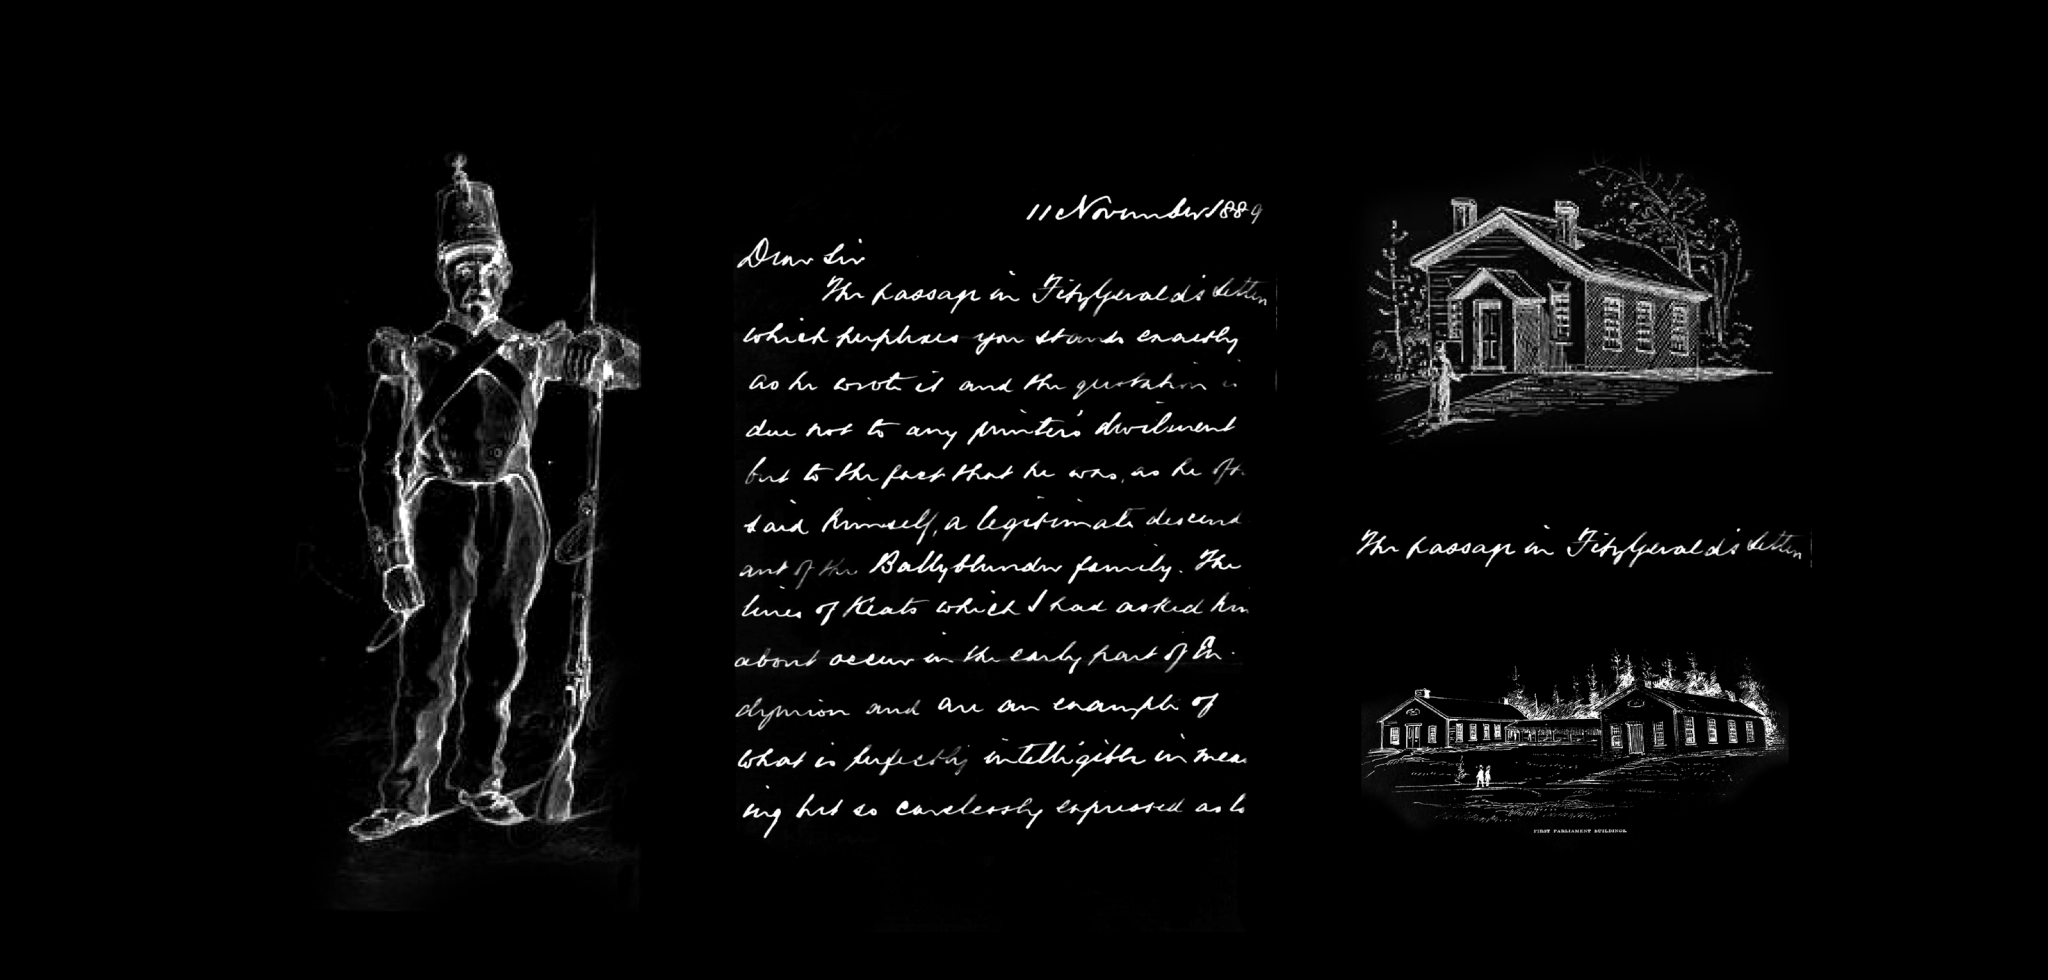 11 November 1889
Dear Sir
The passage in FitzGerald's letter
which perplexes you stands exactly
as he wrote it and the quotation is
due not to any printer's devilment
but to the fact that he was, as he oft
said himself, a legitimate descend
ant of the Ballyblunder family. The
lines of Keats which I had asked him
about occur in the early part of En-
dymion and are an example of
what is perfectly intelligible in mea
ing but so carelessly expressed as to
The passage in FitzGerald's letter
FIRST PARLIAMENT BUILDINGS.